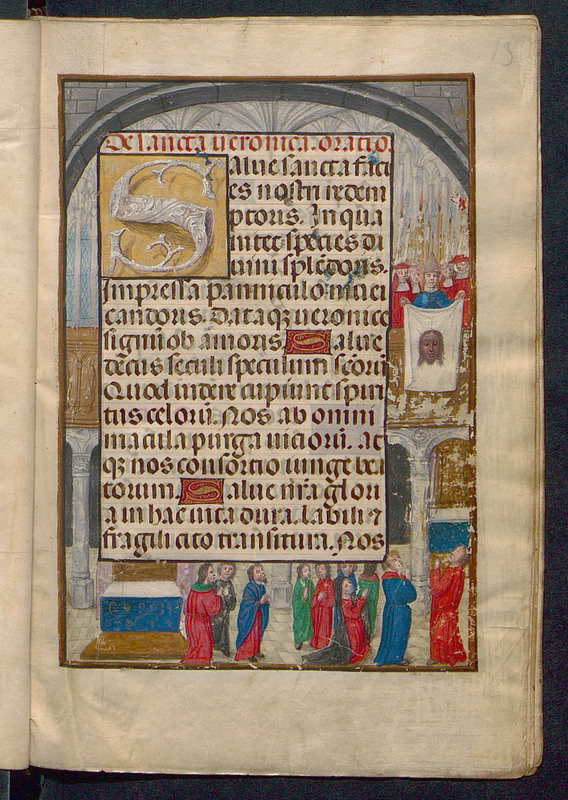 13
De sancta veronica. oratio.
Salve sancta faci
es nostri redem
ptoris. In qua
nitet species di
vini splēdoris.
Impressa panniculo nivei
candoris. Dataq̨ veronice
signū ob amoris Salve
decus seculi speculum scōrū
Quod videre cupiunt spiri
tus celorū. Nos ab omni
macula purga viciorū. At
q̨ nos consortio iunge bea
torum. Salve nr̄a glori
a in hac vita dura. labili ⁊
fragili cito transitura. Nos